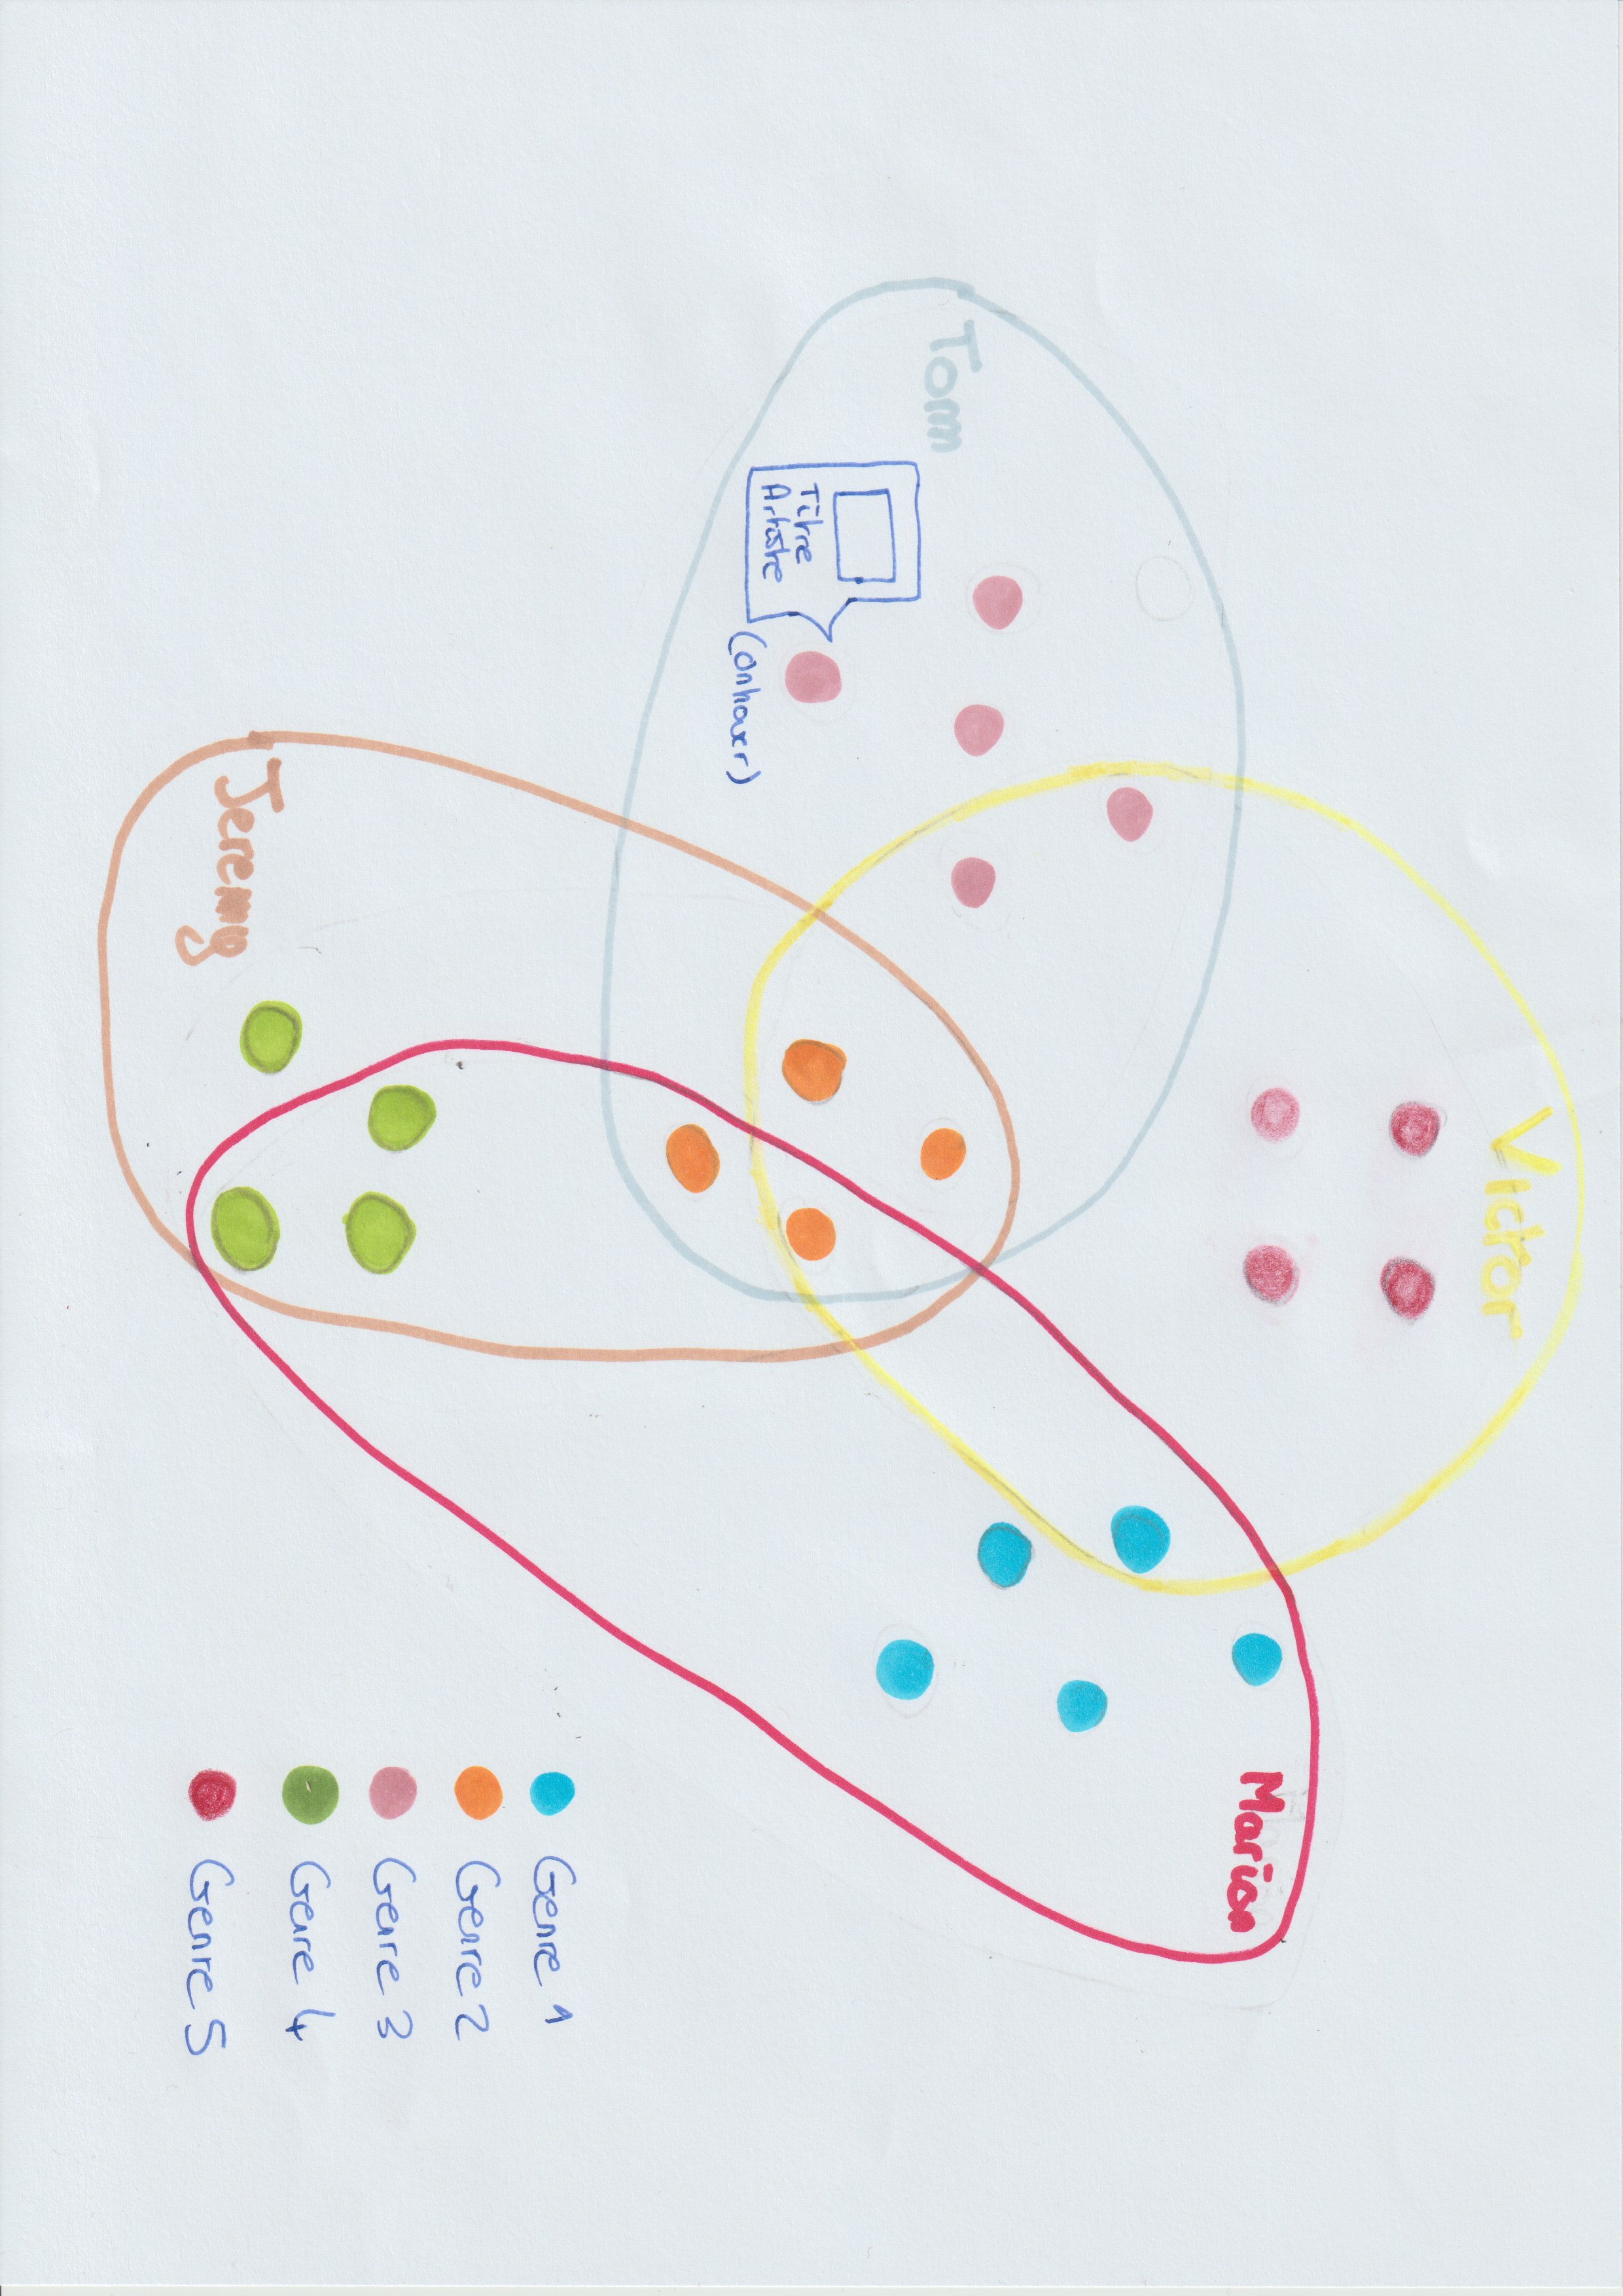 Victor
Marion
Tom
Titre
Artiste
(onhover)
Jeremy
Genre 1
Genre 2
Genre 3
Genre 4
Genre 5